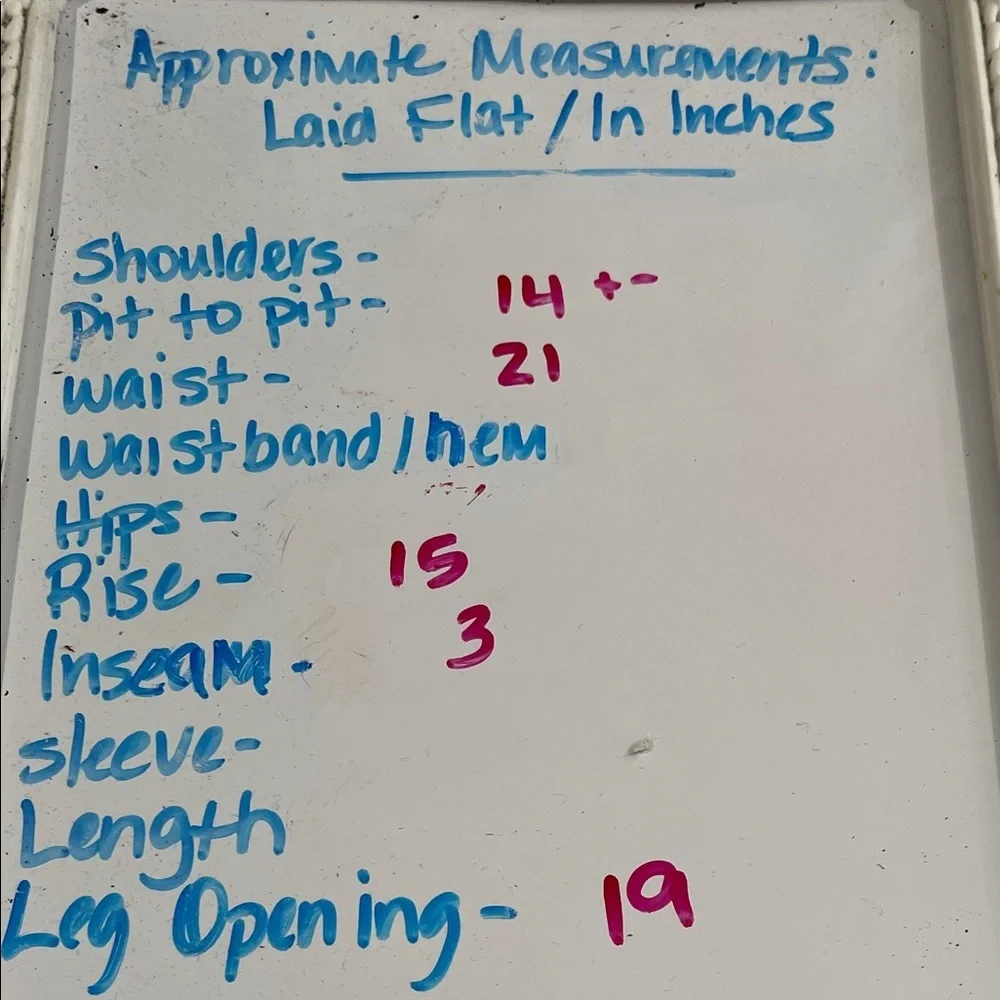 Approximate Measurements:
Laid Flat / In Inches
Shoulders -
pit to pit - 14 +-
waist - 21
waistband / hem
Hips -
Rise - 15
Inseam - 3
sleeve -
Length
Leg Opening - 19